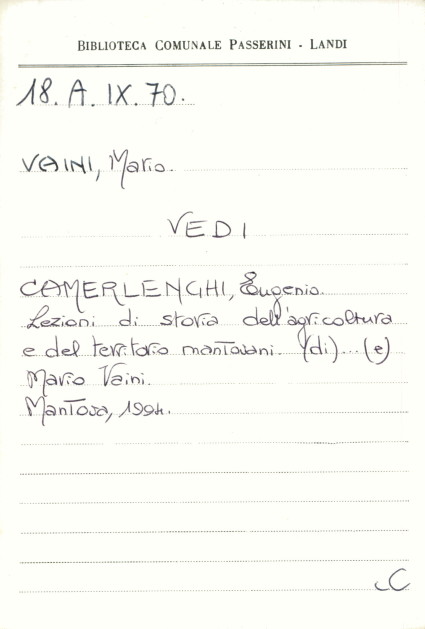 BIBLIOTECA COMUNALE PASSERINI - LANDI
18. A. IX. 70.
VAINI, Mario.
VEDI
CAMERLENGHI, Eugenio.
Lezioni di storia dell'agricoltura
e del territorio mantovani. (di)...(e)
Mario Vaini.
Mantova, 1994.
C